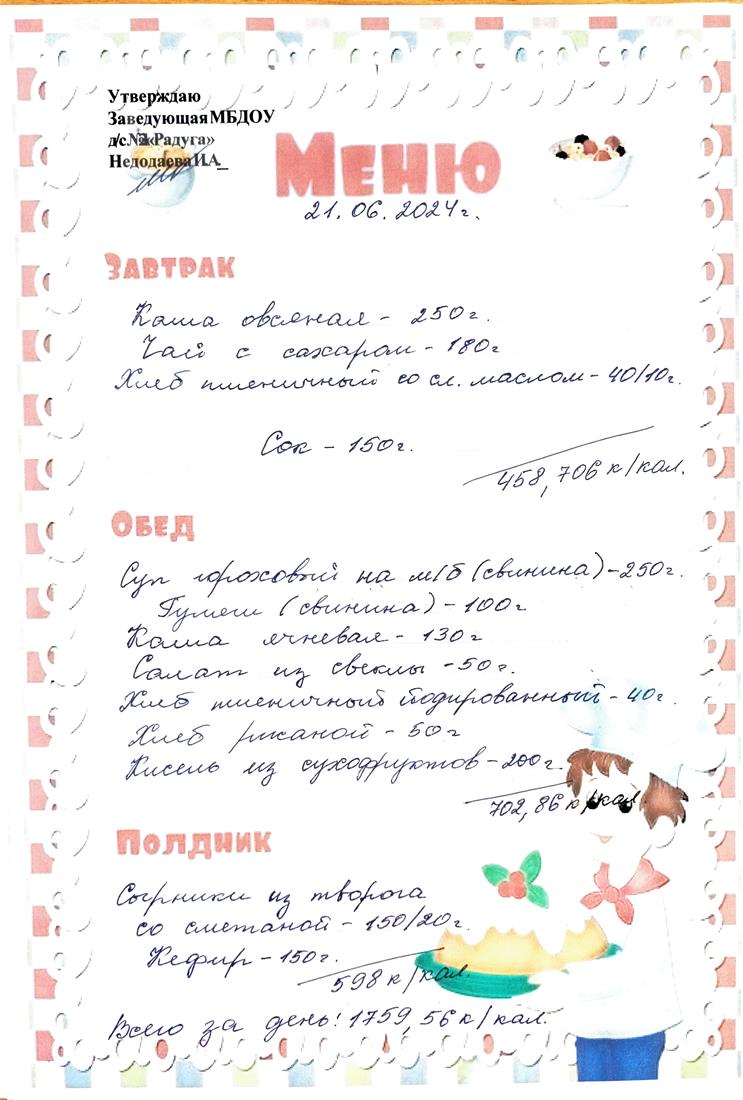 Утверждаю
Заведующая МБДОУ
д/с № «Радуга»
Недодаева И.А_
Меню
21. 06. 2024г.
Завтрак
Каша овсяная - 250г.
Чай с сахаром - 180г
Хлеб пшеничный со сл. маслом - 40/10г.
Сок - 150г.
458,706 к/кал.
Обед
Суп гороховый на м/б (свинина) - 250г.
Гуляш (свинина) - 100г
Каша ячневая - 130г
Салат из свеклы - 50г.
Хлеб пшеничный йодированный - 40г.
Хлеб ржаной - 50г
Кисель из сухофруктов - 200г.
702,86 к/кал
Полдник
Сырники из творога
со сметаной - 150/20г.
Кефир - 150г.
598 к/кал.
Всего за день: 1759,56 к/кал.